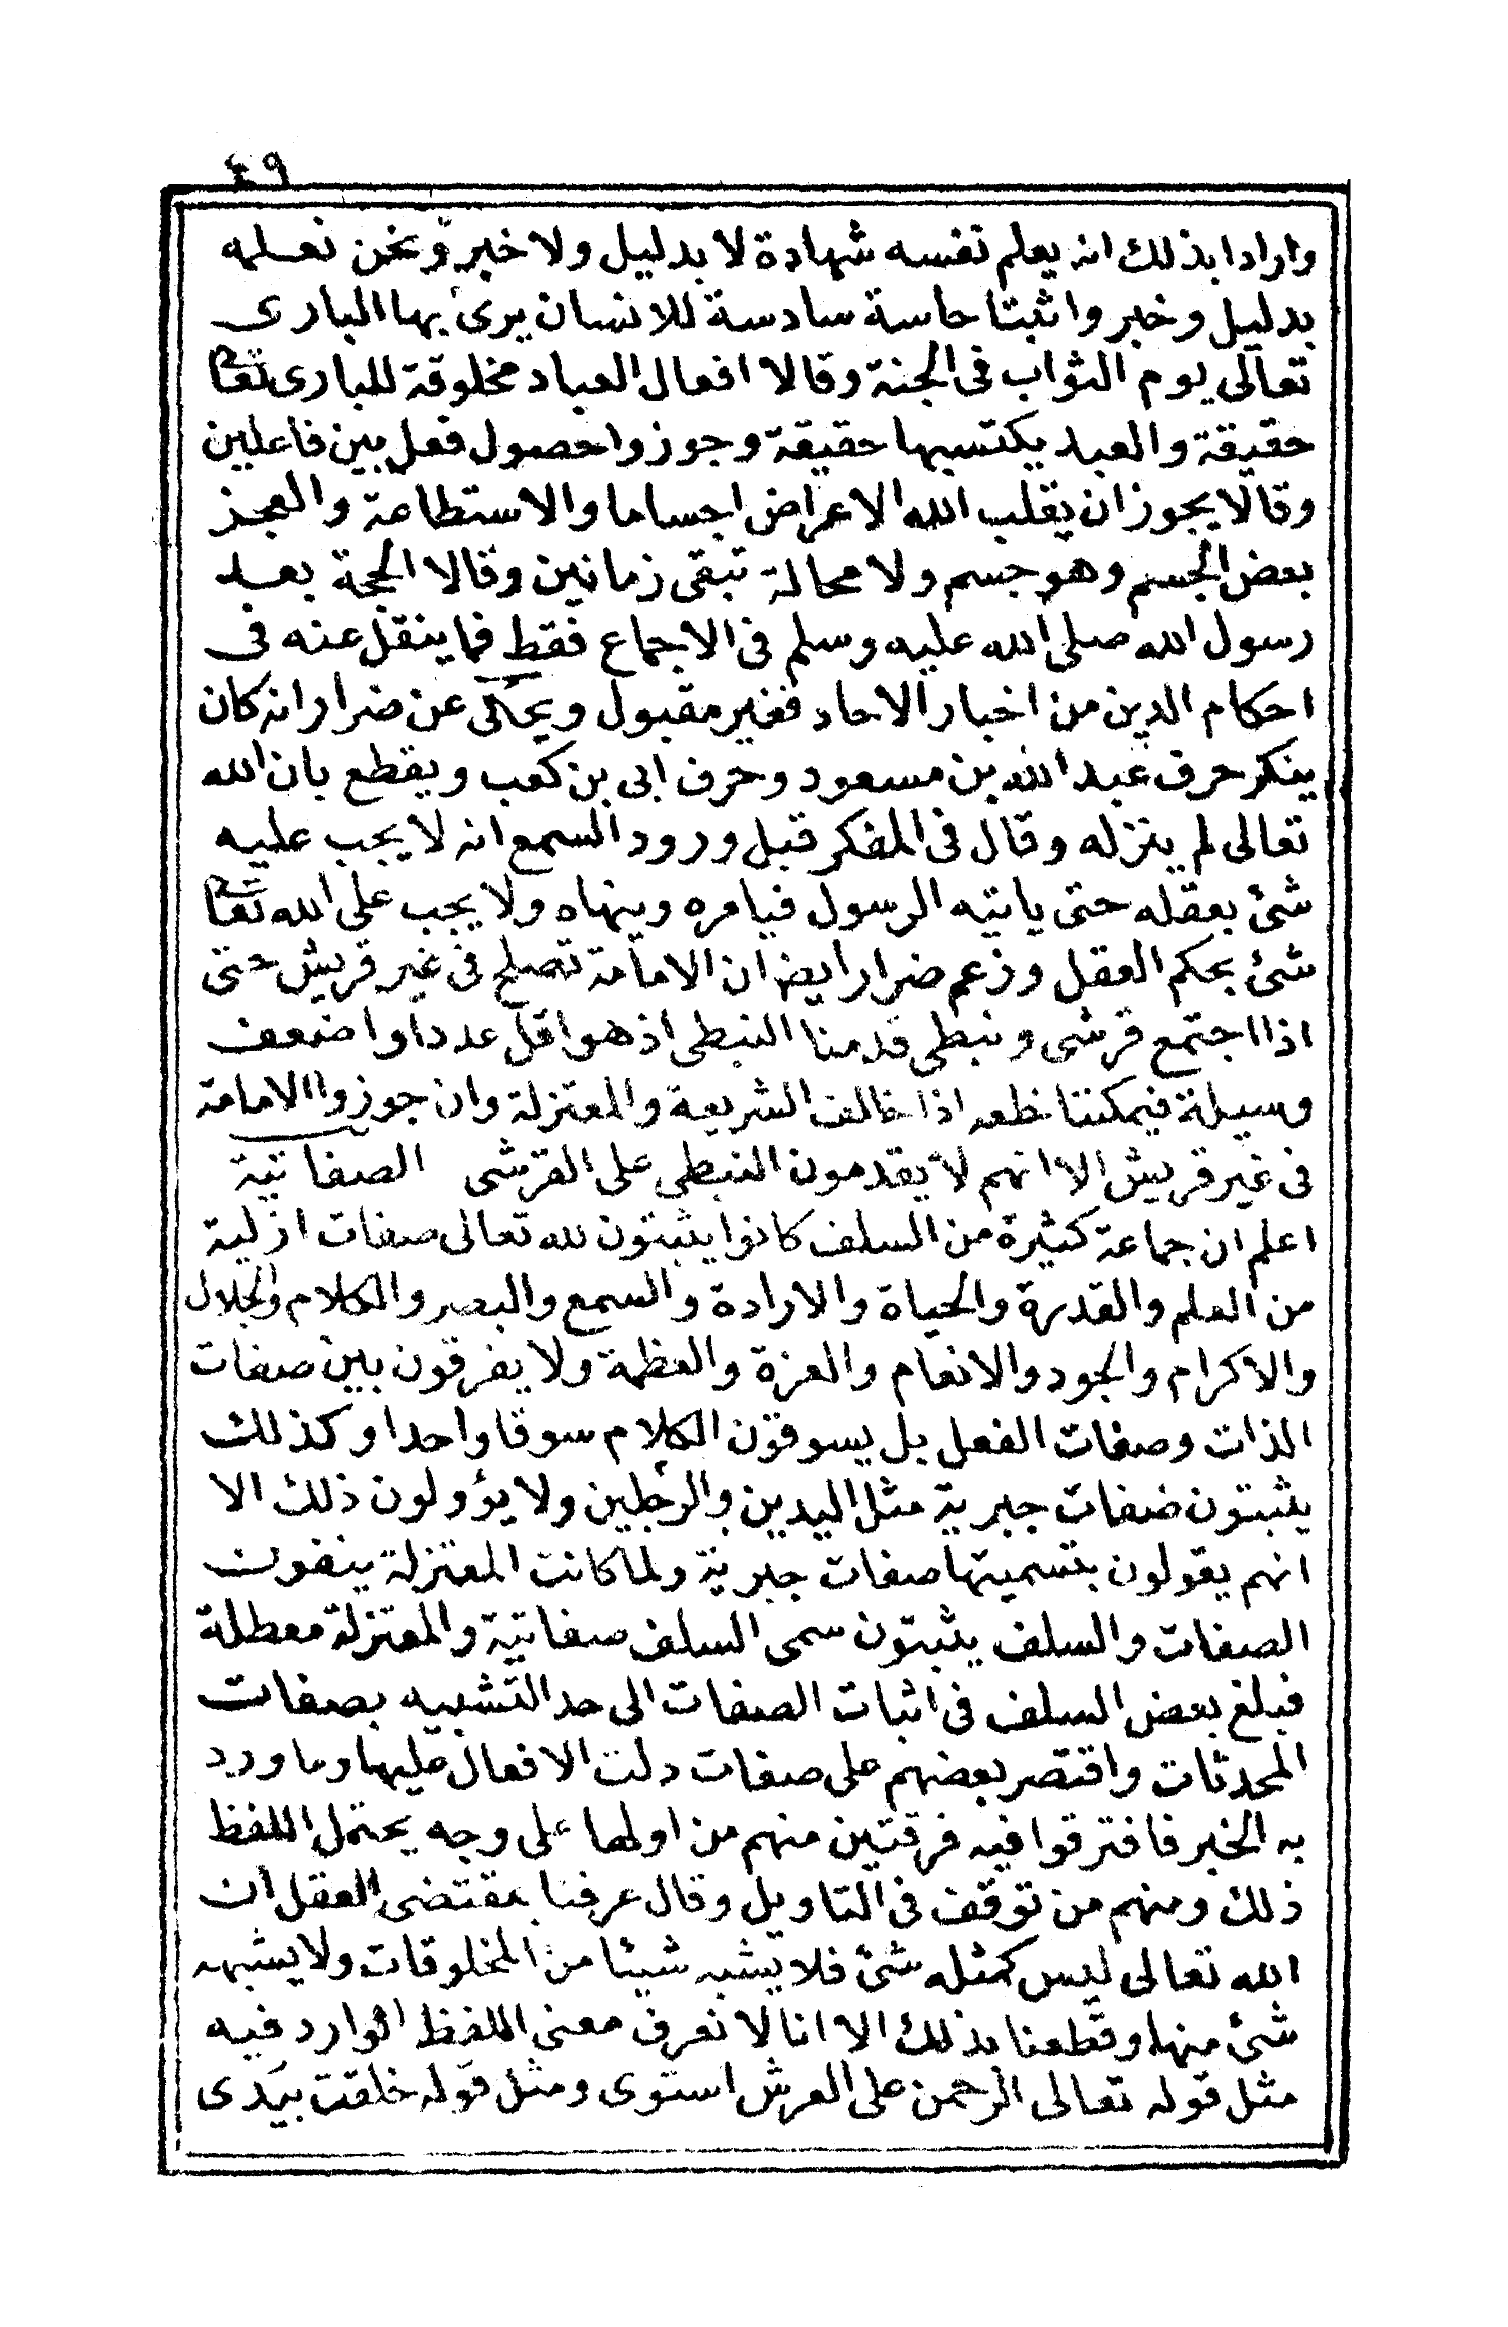 ٤٩
وارادا بذلك انه يعلم نفسه شهادة لا بدليل ولا خبر ونحن نعلمه
بدليل وخبر واثبتا حاسة سادسة للانسان يرى بها البارى
تعالى يوم الثواب فى الجنة وقالا افعال العباد مخلوقة للبارى تعا
حقيقة والعبد يكتسبها حقيقة وجوزوا حصول فعل بين فاعلين
وقالا يجوز ان يقلب الله الاعراض اجساما والاستطاعة والعجز
بعض الجسم وهو جسم ولا محالة تبقى زمانين وقالا الحجة بعد
رسول الله صلى الله عليه وسلم فى الاجماع فقط فما ينقل عنه فى
احكام الدين من اخبار الاحاد فغير مقبول ويحكى عن ضرار انه كان
ينكر حرف عبد الله بن مسعود وحرف ابى بن كعب ويقطع بان الله
تعالى لم ينزله وقال فى المفكر قبل ورود السمع انه لا يجب عليه
شئ بعقله حتى ياتيه الرسول فيامره وينهاه ولا يجب على الله تعا
شئ بحكم العقل وزعم ضرار ايضا ان الامامة تصلح فى غير قريش حتى
اذا اجتمع قرشى ونبطى قدمنا النبطى اذ هو اقل عددا واضعف
وسيلة فيمكننا خلعه اذا خالف الشريعة والمعتزلة وان جوزوا الامامة
فى غير قريش الا انهم لا يقدمون النبطى على القرشى الصفاتية
اعلم ان جماعة كثيرة من السلف كانوا يثبتون لله تعالى صفات ازلية
من العلم والقدرة والحياة والارادة والسمع والبصر والكلام والجلال
والاكرام والجود والانعام والعزة والعظمة ولا يفرقون بين صفات
الذات وصفات الفعل بل يسوقون الكلام سوقا واحدا وكذلك
يثبتون صفات جبرية مثل اليدين والرجلين ولا يؤولون ذلك الا
انهم يقولون بتسميتها صفات جبرية ولما كانت المعتزلة ينفون
الصفات والسلف يثبتون سمى السلف صفاتية والمعتزلة معطلة
فبلغ بعض السلف فى اثبات الصفات الى حد التشبيه بصفات
المحدثات واقتصر بعضهم على صفات دلت الافعال عليها وما ورد
به الخبر فافترقوا فيه فرقتين منهم من اولها على وجه يحتمل اللفظ
ذلك ومنهم من توقف فى التاويل وقال عرفنا بمقتضى العقل ان
الله تعالى ليس كمثله شئ فلا يشبه شيئا من المخلوقات ولا يشبهه
شئ منها وقطعنا بذلك الا انا لا نعرف معنى اللفظ الوارد فيه
مثل قوله تعالى الرحمن على العرش استوى ومثل قوله خلقت بيدى